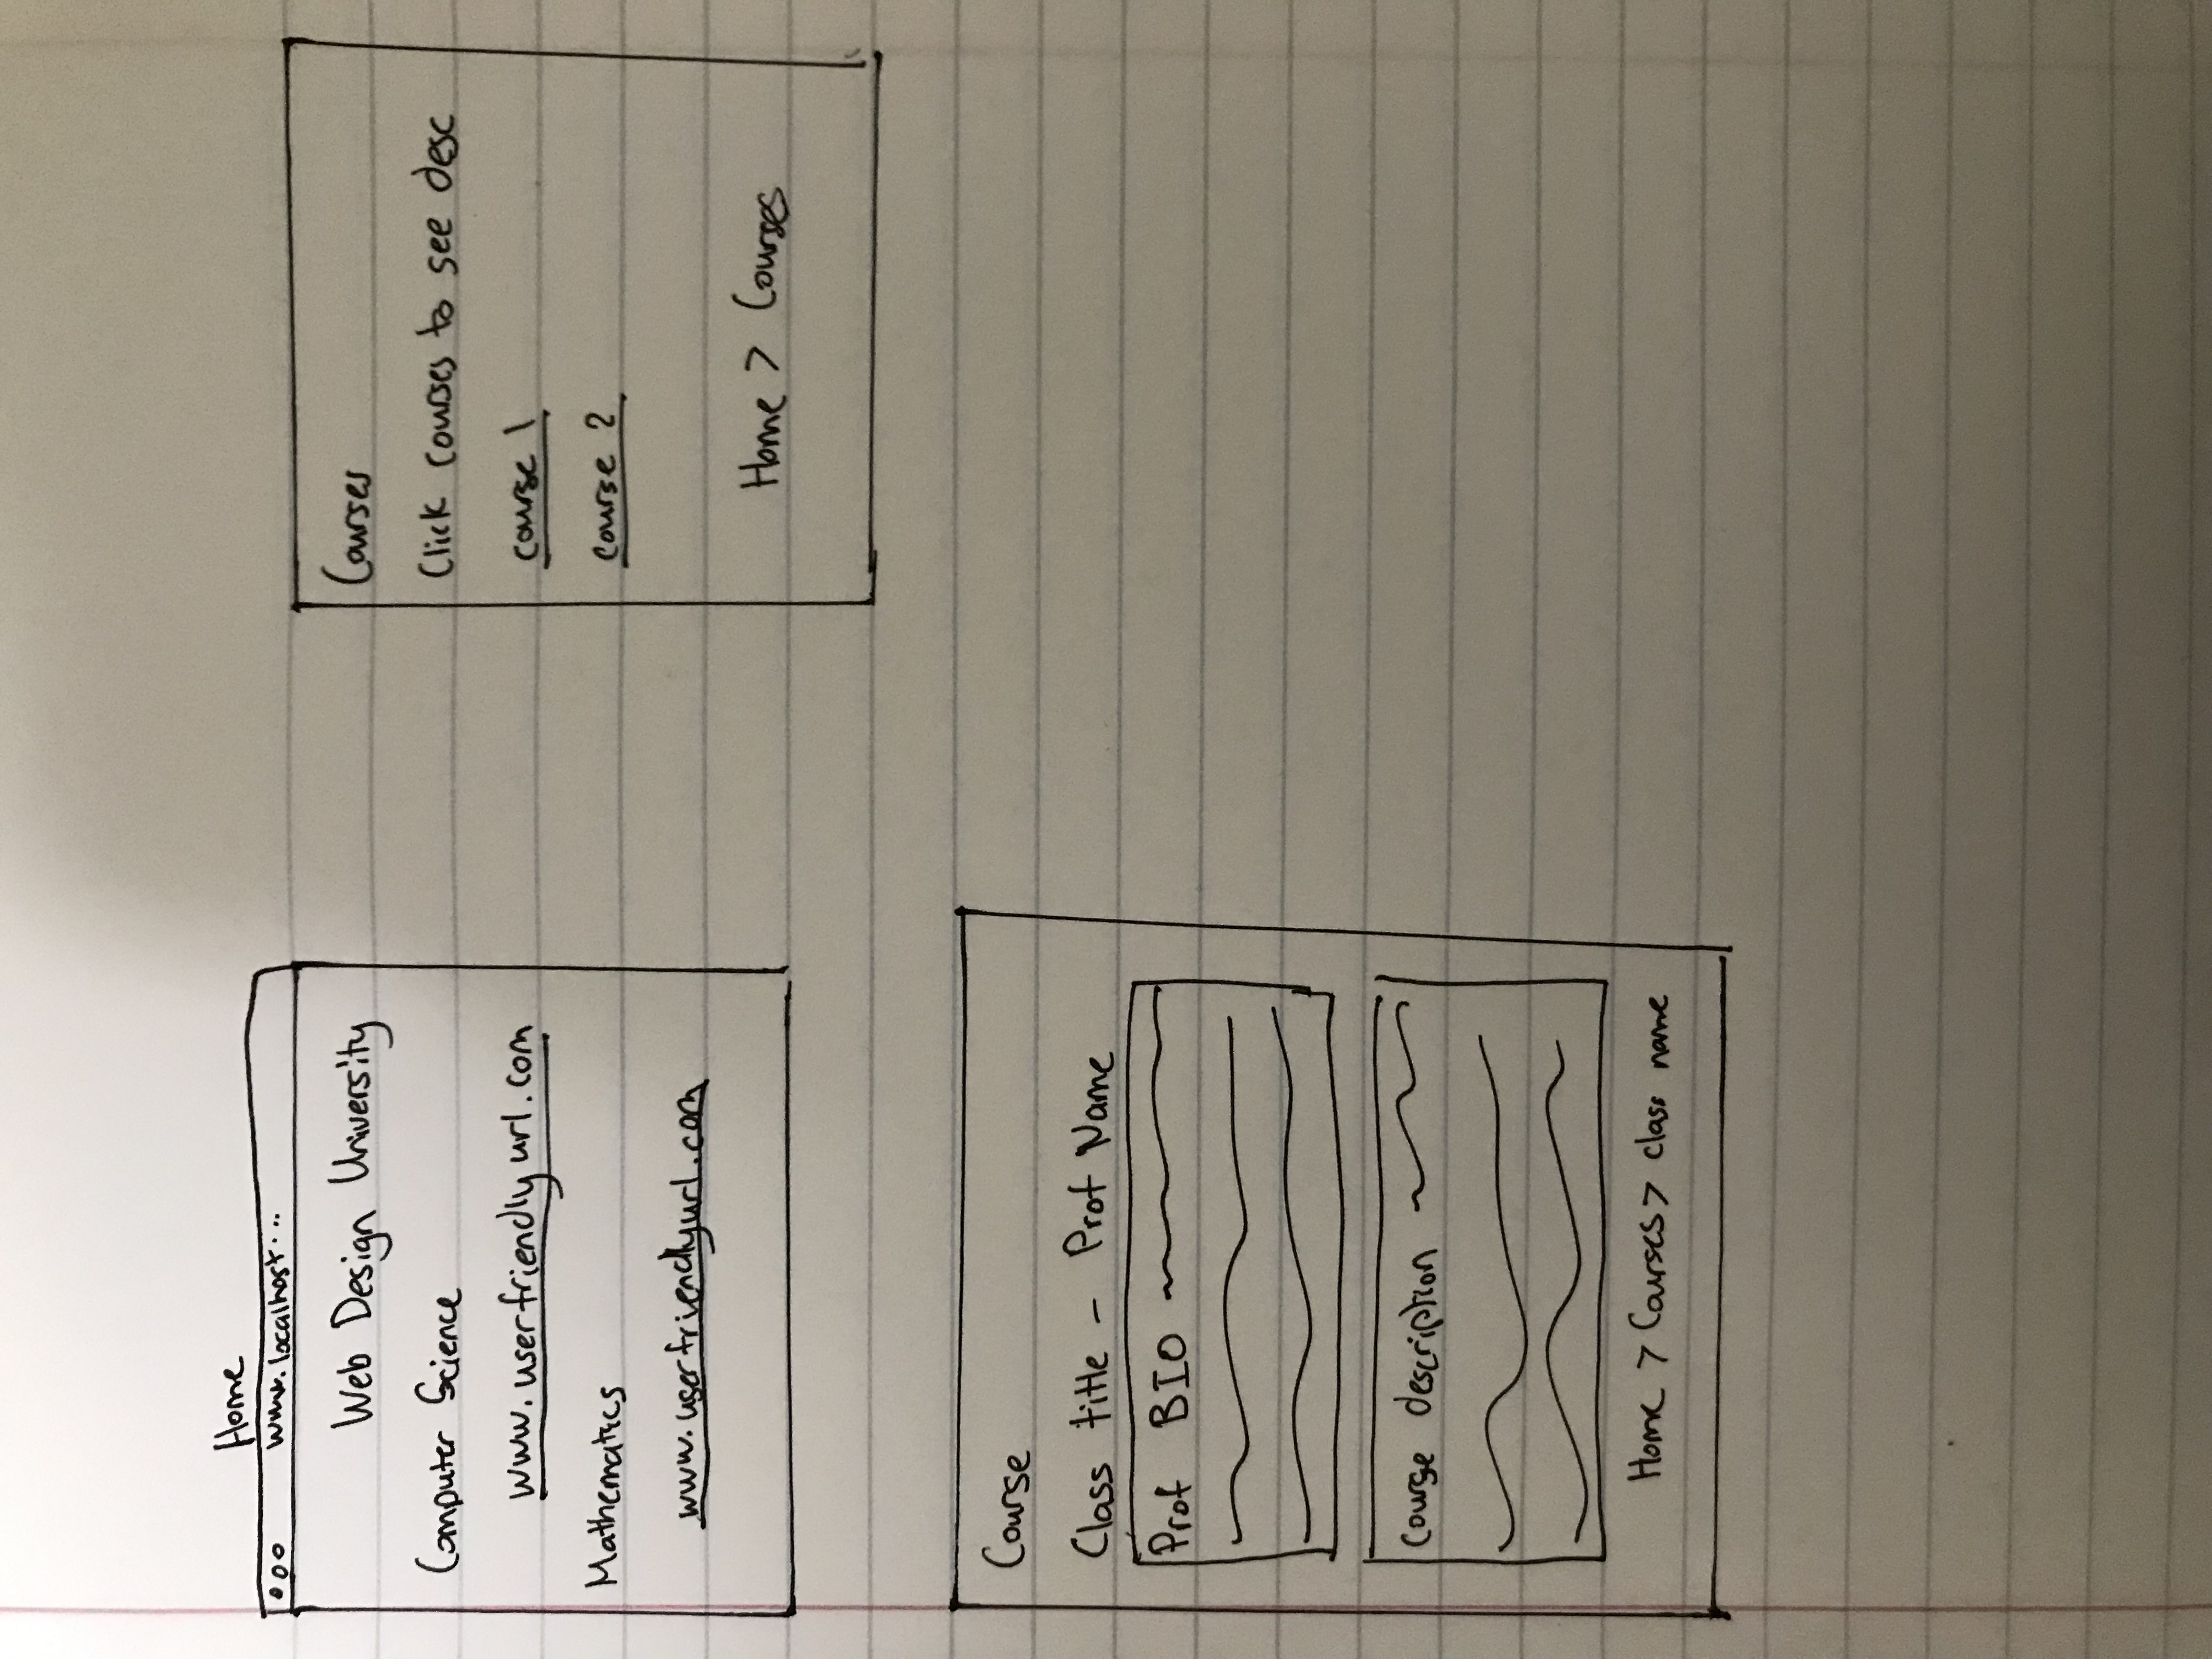 Home
www.localhost...
Web Design University
Computer Science
www.userfriendlyurl.com
Mathematics
www.userfriendlyurl.com
Courses
Click courses to see desc
course 1
course 2
Home > Courses
Course
Class title - Prof Name
Prof BIO
Course description
Home > Courses > class name